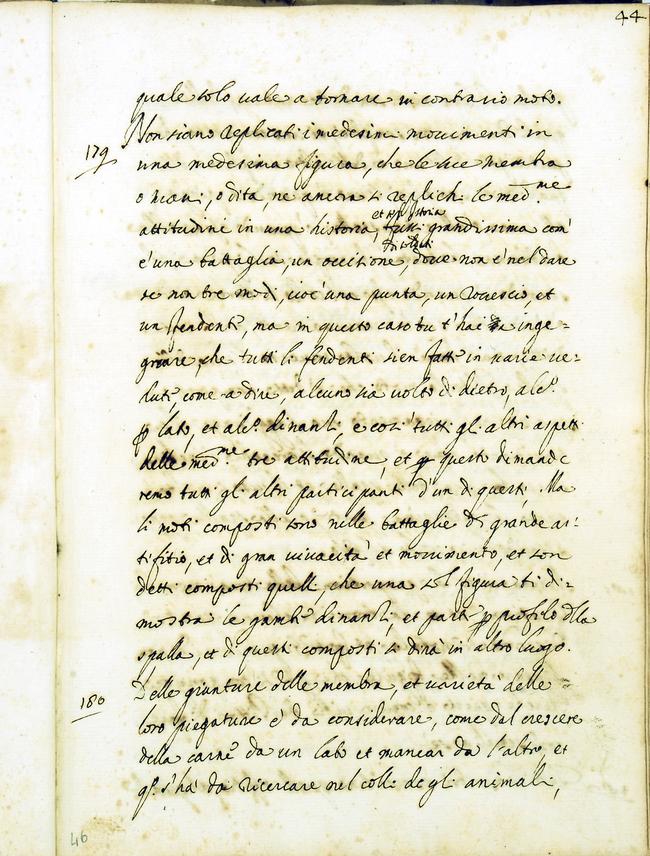 44
quale solo uale a tornare in contrario moto.
179
Non siano replicati i medesimi mouimenti in
una medesima figura, che le sue membra
o mani, o dita, ne ancora si replichi le med.me
attitudini in una historia,
grandissima com'
è una battaglia, un occisione, doue non è nel dare
se non tre modi, cioè una punta, un rouescio, et
un fendente, ma in questo caso tu t'hai inge=
gniare, che tutti li fendenti sien fatti in uarie ue=
dute, come a dire, alcuno sia uolto di dietro, alc.o
p lato, et alc.o dinanzi, e così tutti gl'altri aspetti
delle med.me tre attitudine, et p questo dimande
remo tutti gli altri participanti d'un di questi, Ma
li moti composti sono nelle battaglie di grande ar=
tifitio, et di gran uiuacità et mouimento, et son
detti composti quelli, che una sol figura ti di=
mostra le gambe dinanzi, et parte p profilo della
spalla, et di questi composti si dirà in altro luogo.
180
Delle giunture delle membra, et uarietà delle =
loro piegature è da considerare, come dal crescere
della carne da un lato et mancar da l'altro, et
q.o s'ha da ricercare nel collo degli animali,
46